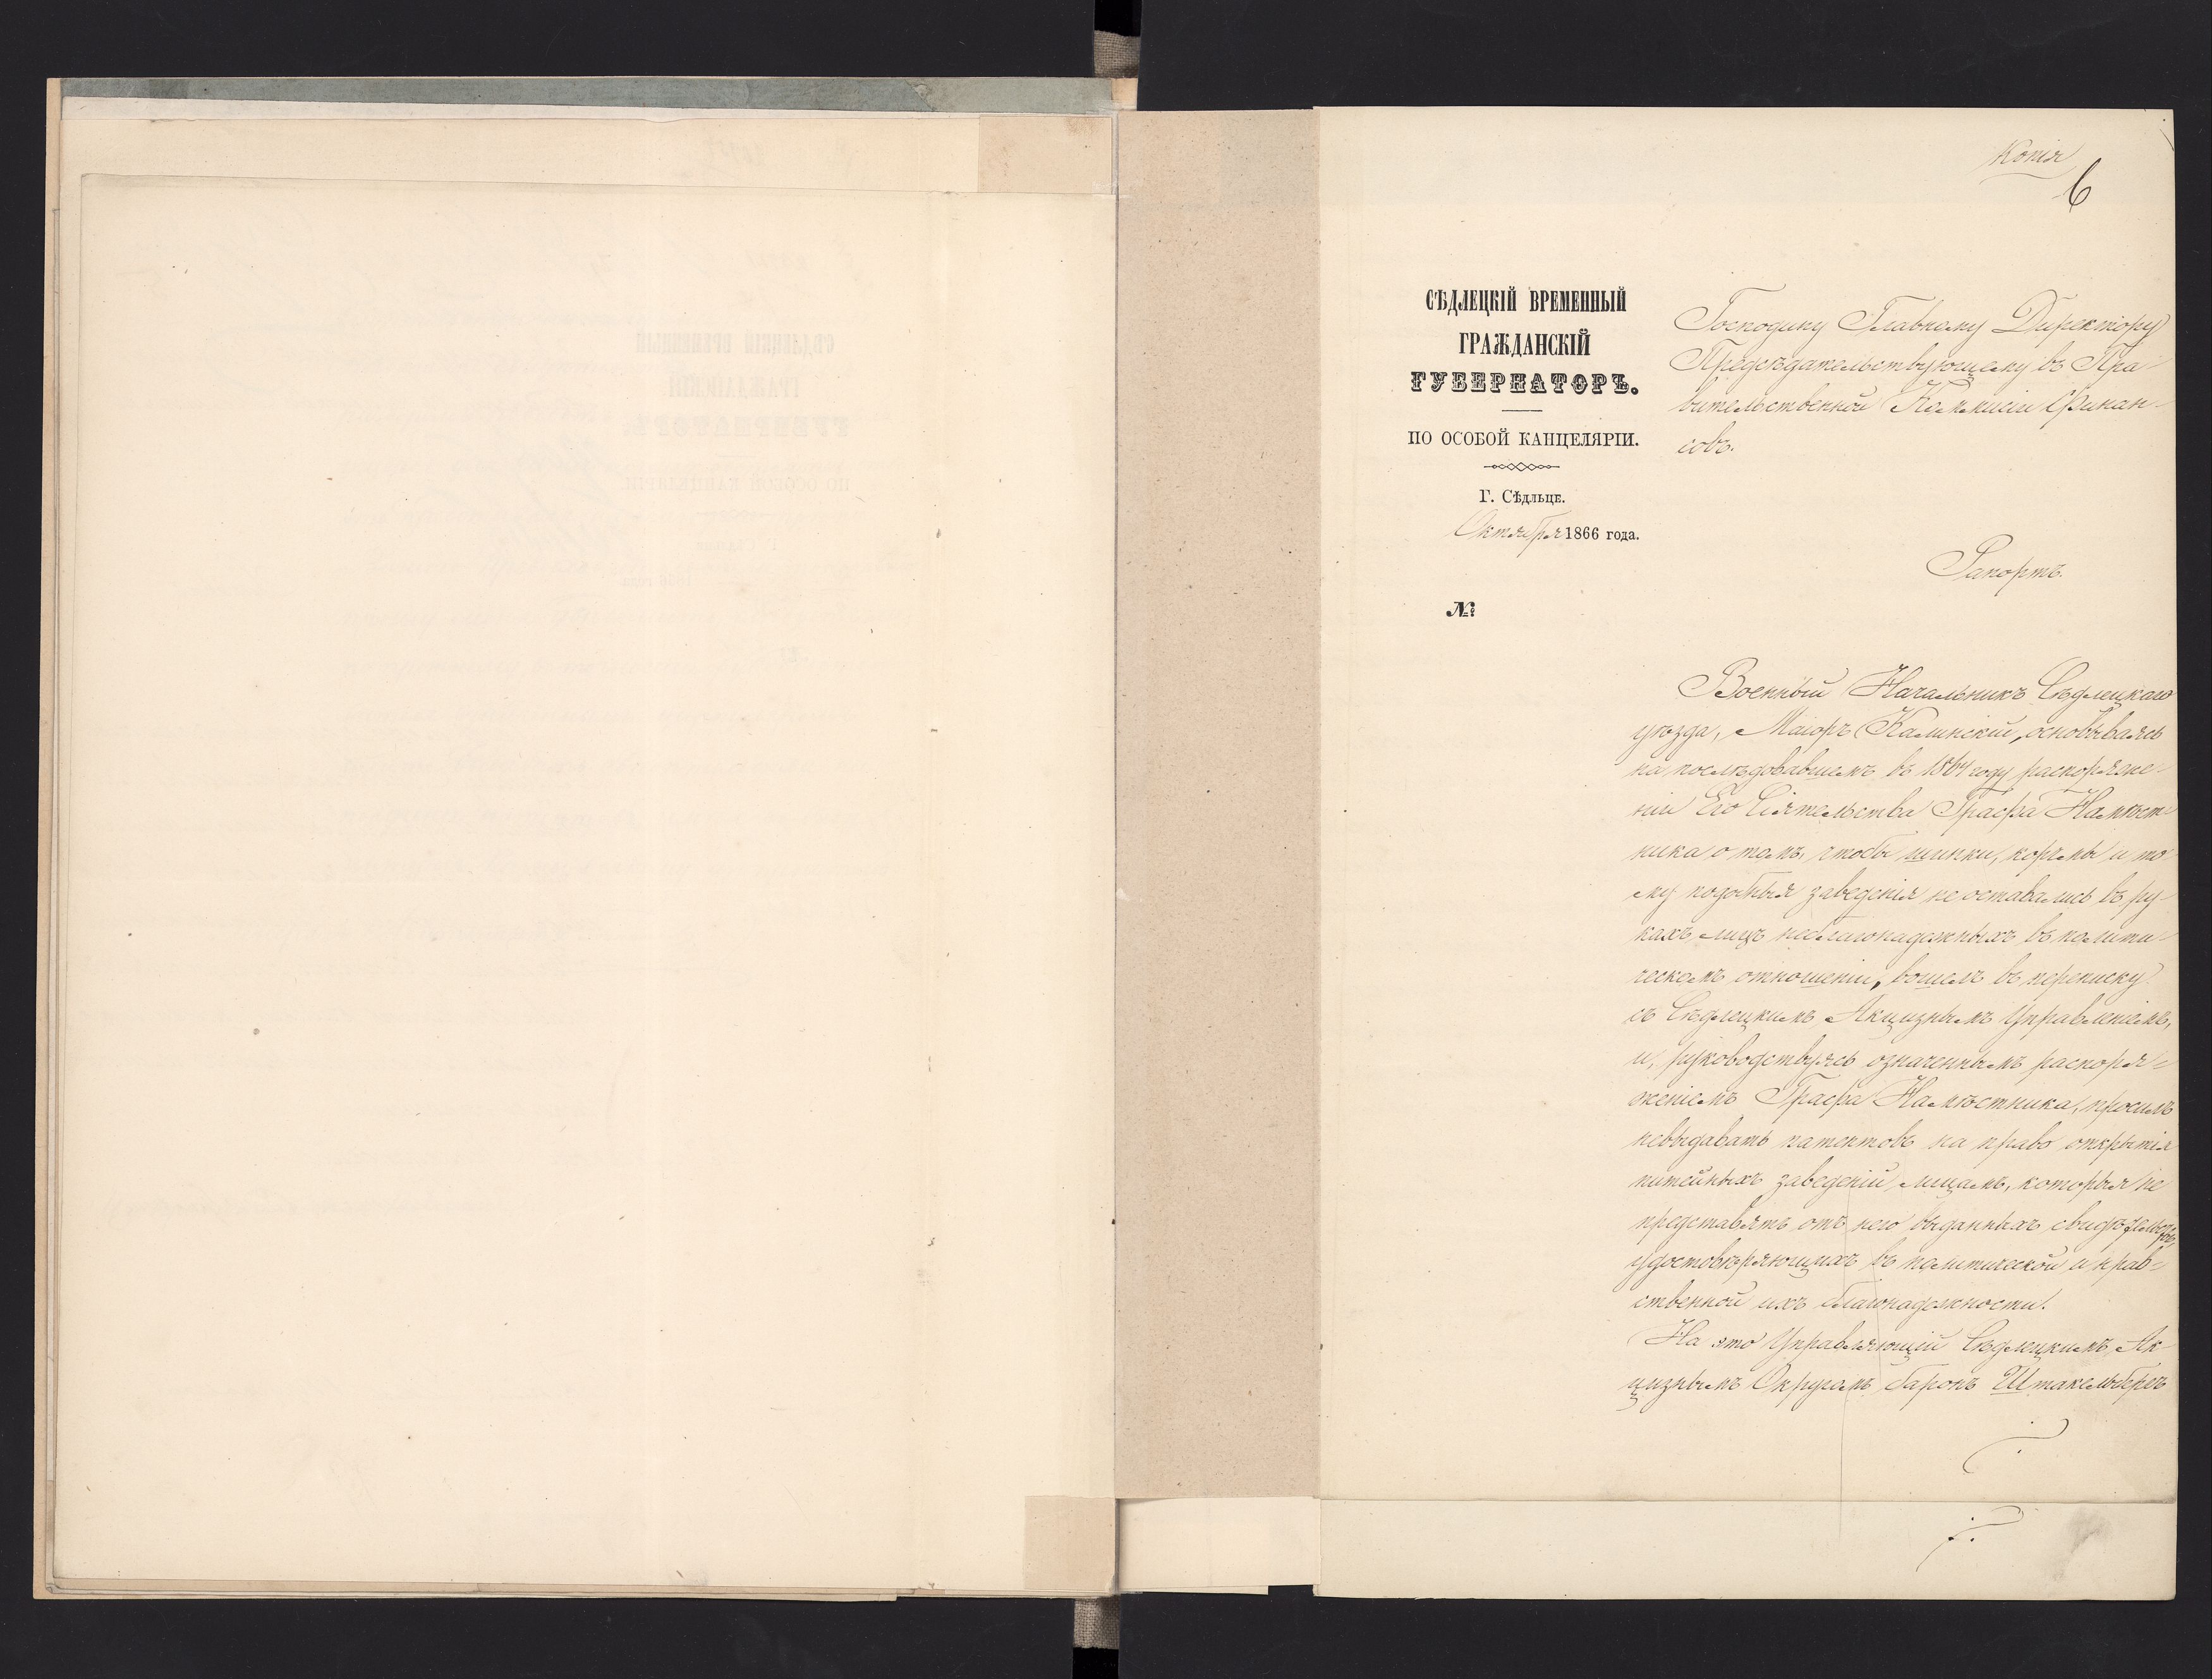 Копія
6
СѢДЛЕЦКІЙ ВРЕМЕННЫЙ
ГРАЖДАНСКІЙ
ГУБЕРНАТОРЪ.
ПО ОСОБОЙ КАНЦЕЛЯРІИ.
Г. Сѣдльце.
Октября 1866 года.
№
Господину Главному Директору
Предсѣдательствующему въ Пра-
вительственной Коммисіи Финан-
совъ.
Рапортъ.
Военный Начальникъ Сѣдлецкаго
уѣзда, Маіоръ Калинскій, основываясь
на послѣдовавшемъ въ 1864 году распоряже-
ніи Его Сіятельства Графа Намѣст-
ника о томъ, чтобы шинки, корчмы и то-
му подобныя заведенія не оставались въ ру-
кахъ лицъ неблагонадежныхъ въ полити-
ческомъ отношеніи, вошелъ въ переписку
съ Сѣдлецкимъ Акцизнымъ Управленіемъ,
и, руководствуясь означеннымъ распоря-
женіемъ Графа Намѣстника, просилъ
невыдавать патентовъ на право открытія
питейныхъ заведеній лицамъ, которыя не
представятъ отъ него выданныхъ свидѣтельствъ,
удостовѣряющихъ въ политической и нрав-
ственной ихъ благонадежности.
На это Управляющій Сѣдлецкимъ Ак-
цизнымъ Округомъ баронъ Штакельбергъ